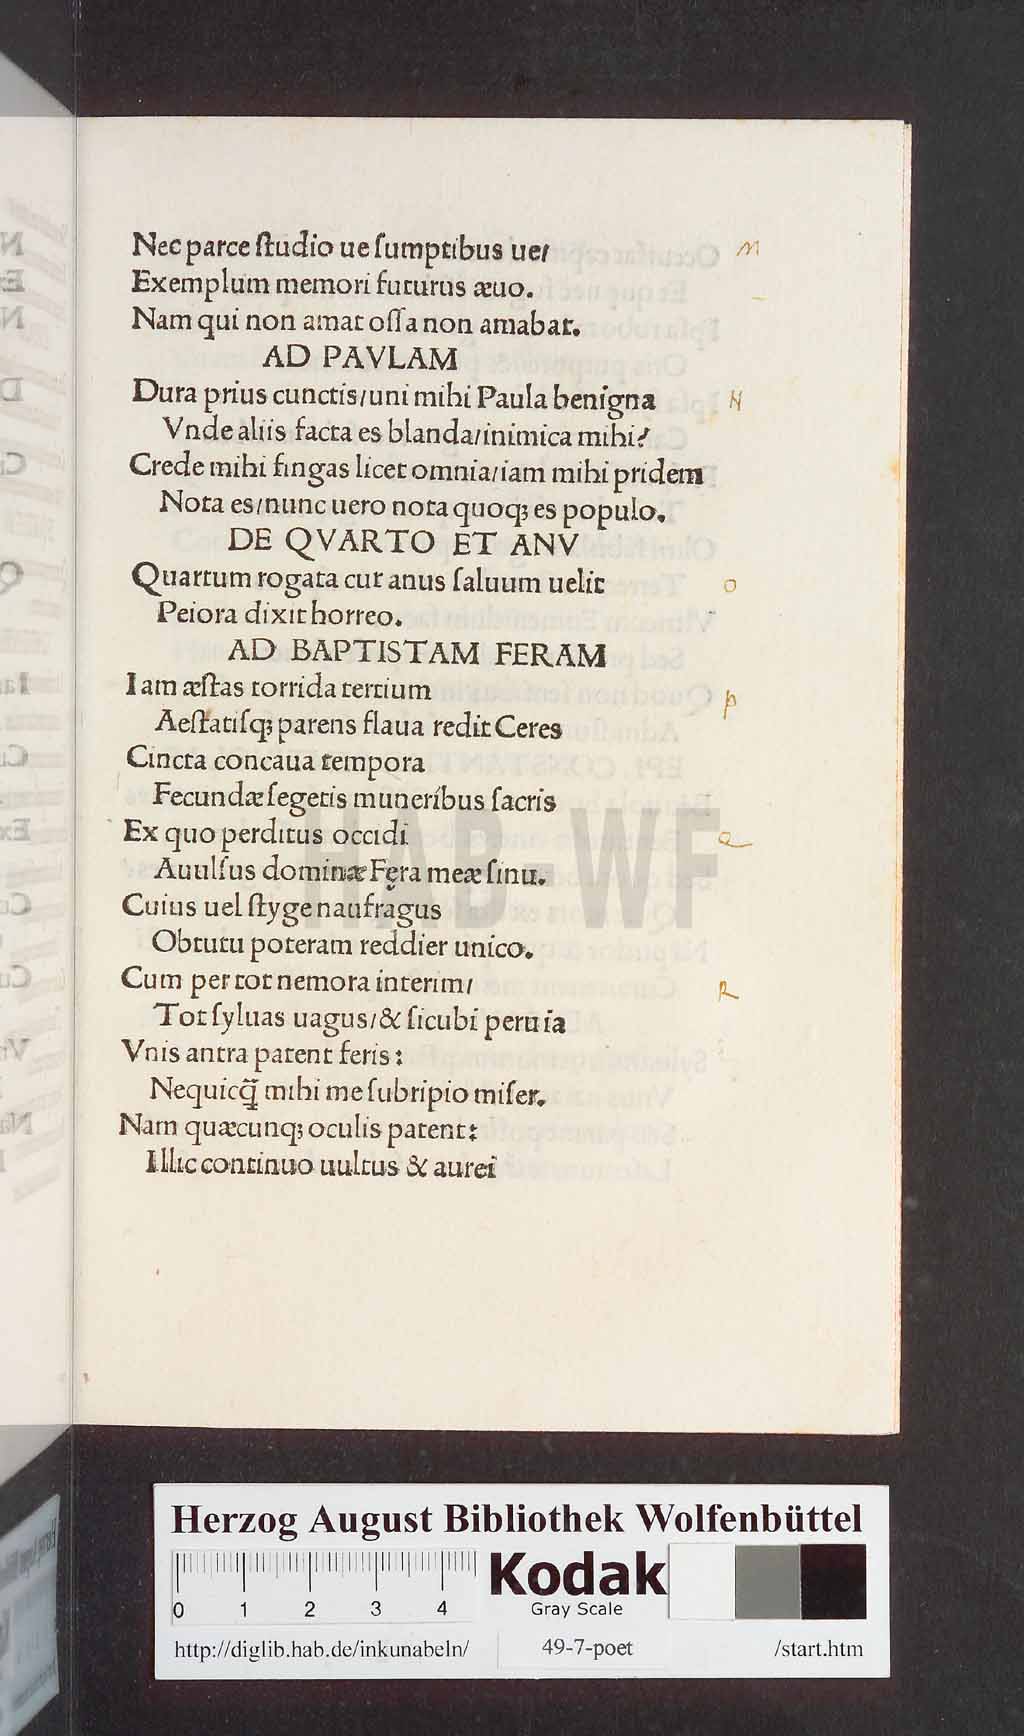 Nec parce ſtudio ue ſumptibus ue/ M
Exemplum memori futurus æuo.
Nam qui non amat oſſa non amabat.
AD PAVLAM
Dura prius cunctis/uni mihi Paula benigna N
Vnde aliis facta es blanda/inimica mihi?
Crede mihi fingas licet omnia/iam mihi pridem
Nota es/nunc uero nota quoqꝫ es populo.
DE QVARTO ET ANV
Quartum rogata cur anus ſaluum uelit O
Peiora dixit horreo.
AD BAPTISTAM FERAM
Iam æſtas torrida tertium P
Aeſtatiſqꝫ parens flaua redit Ceres
Cincta concaua tempora
Fecundæ ſegetis muneribus ſacris
Ex quo perditus occidi Q
Auulſus dominæ Fęra meæ ſinu.
Cuius uel ſtyge naufragus
Obtutu poteram reddier unico.
Cum per tot nemora interim/ R
Tot ſyluas uagus/& ſicubi peruia
Vnis antra patent feris:
Nequicq̃ mihi me ſubripio miſer.
Nam quæcunqꝫ oculis patent:
Illic continuo uultus & aurei
HAB-WF
Herzog August Bibliothek Wolfenbüttel
0 1 2 3 4
Kodak
Gray Scale
http://diglib.hab.de/inkunabeln/ 49-7-poet /start.htm